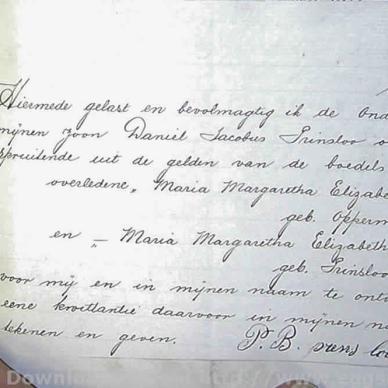 Hiermede gelast en bevolmagtig ik de Ond
mijnen zoon Daniel Jacobus Prinsloo o
spruitende uit de gelden van de boedels
overledene „ Maria Margaretha Elizabe
geb. Opperm
en „ Maria Margaretha Elizabeth
geb. Prinsloo
voor mij en in mijnen naam te ont
eene kwitantie daarvoor in mijnen na
tekenen en geven. P. B.